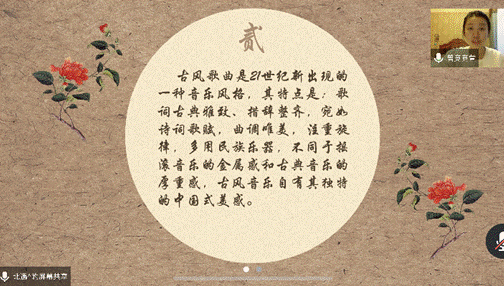 贰
古风歌曲是21世纪新出现的
一种音乐风格，其特点是：歌
词古典雅致、措辞整齐，宛如
诗词歌赋，曲调唯美，注重旋
律，多用民族乐器，不同于摇
滚音乐的金属感和古典音乐的
厚重感，古风音乐自有其独特
的中国式美感。